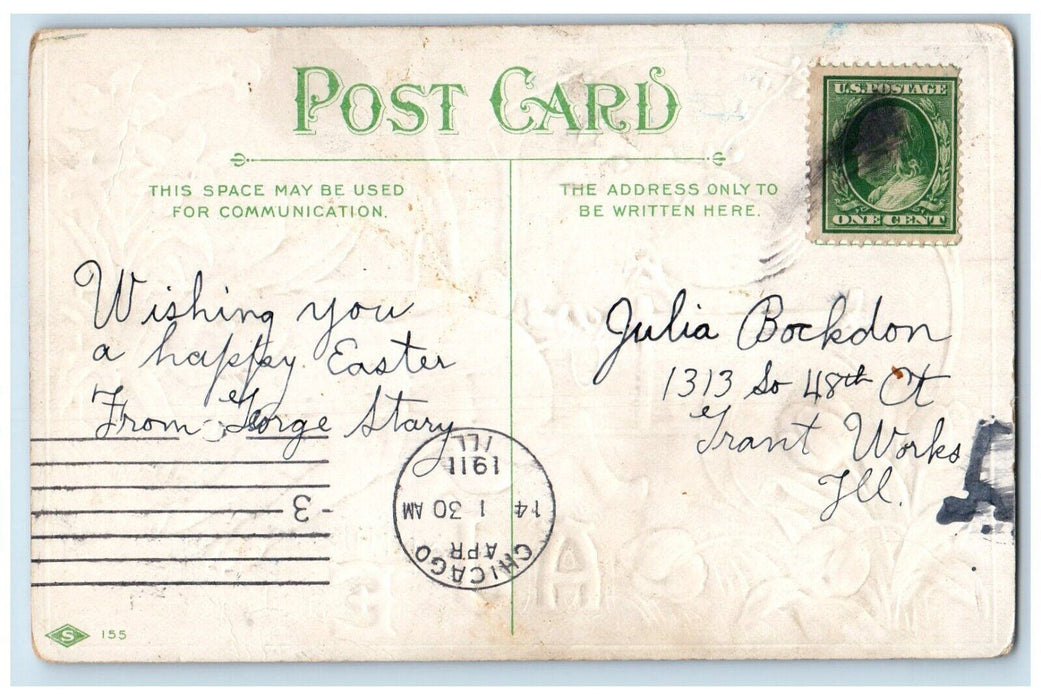 POST CARD
THIS SPACE MAY BE USED
FOR COMMUNICATION.
THE ADDRESS ONLY TO
BE WRITTEN HERE.
U.S. POSTAGE
ONE CENT
Wishing you
a happy Easter
From George Stary
Julia Bockdon
1313 So 48th Ct
Grant Works
Ill.
CHICAGO
APR
14 1 30 AM
1911
ILL
- 3
S 155